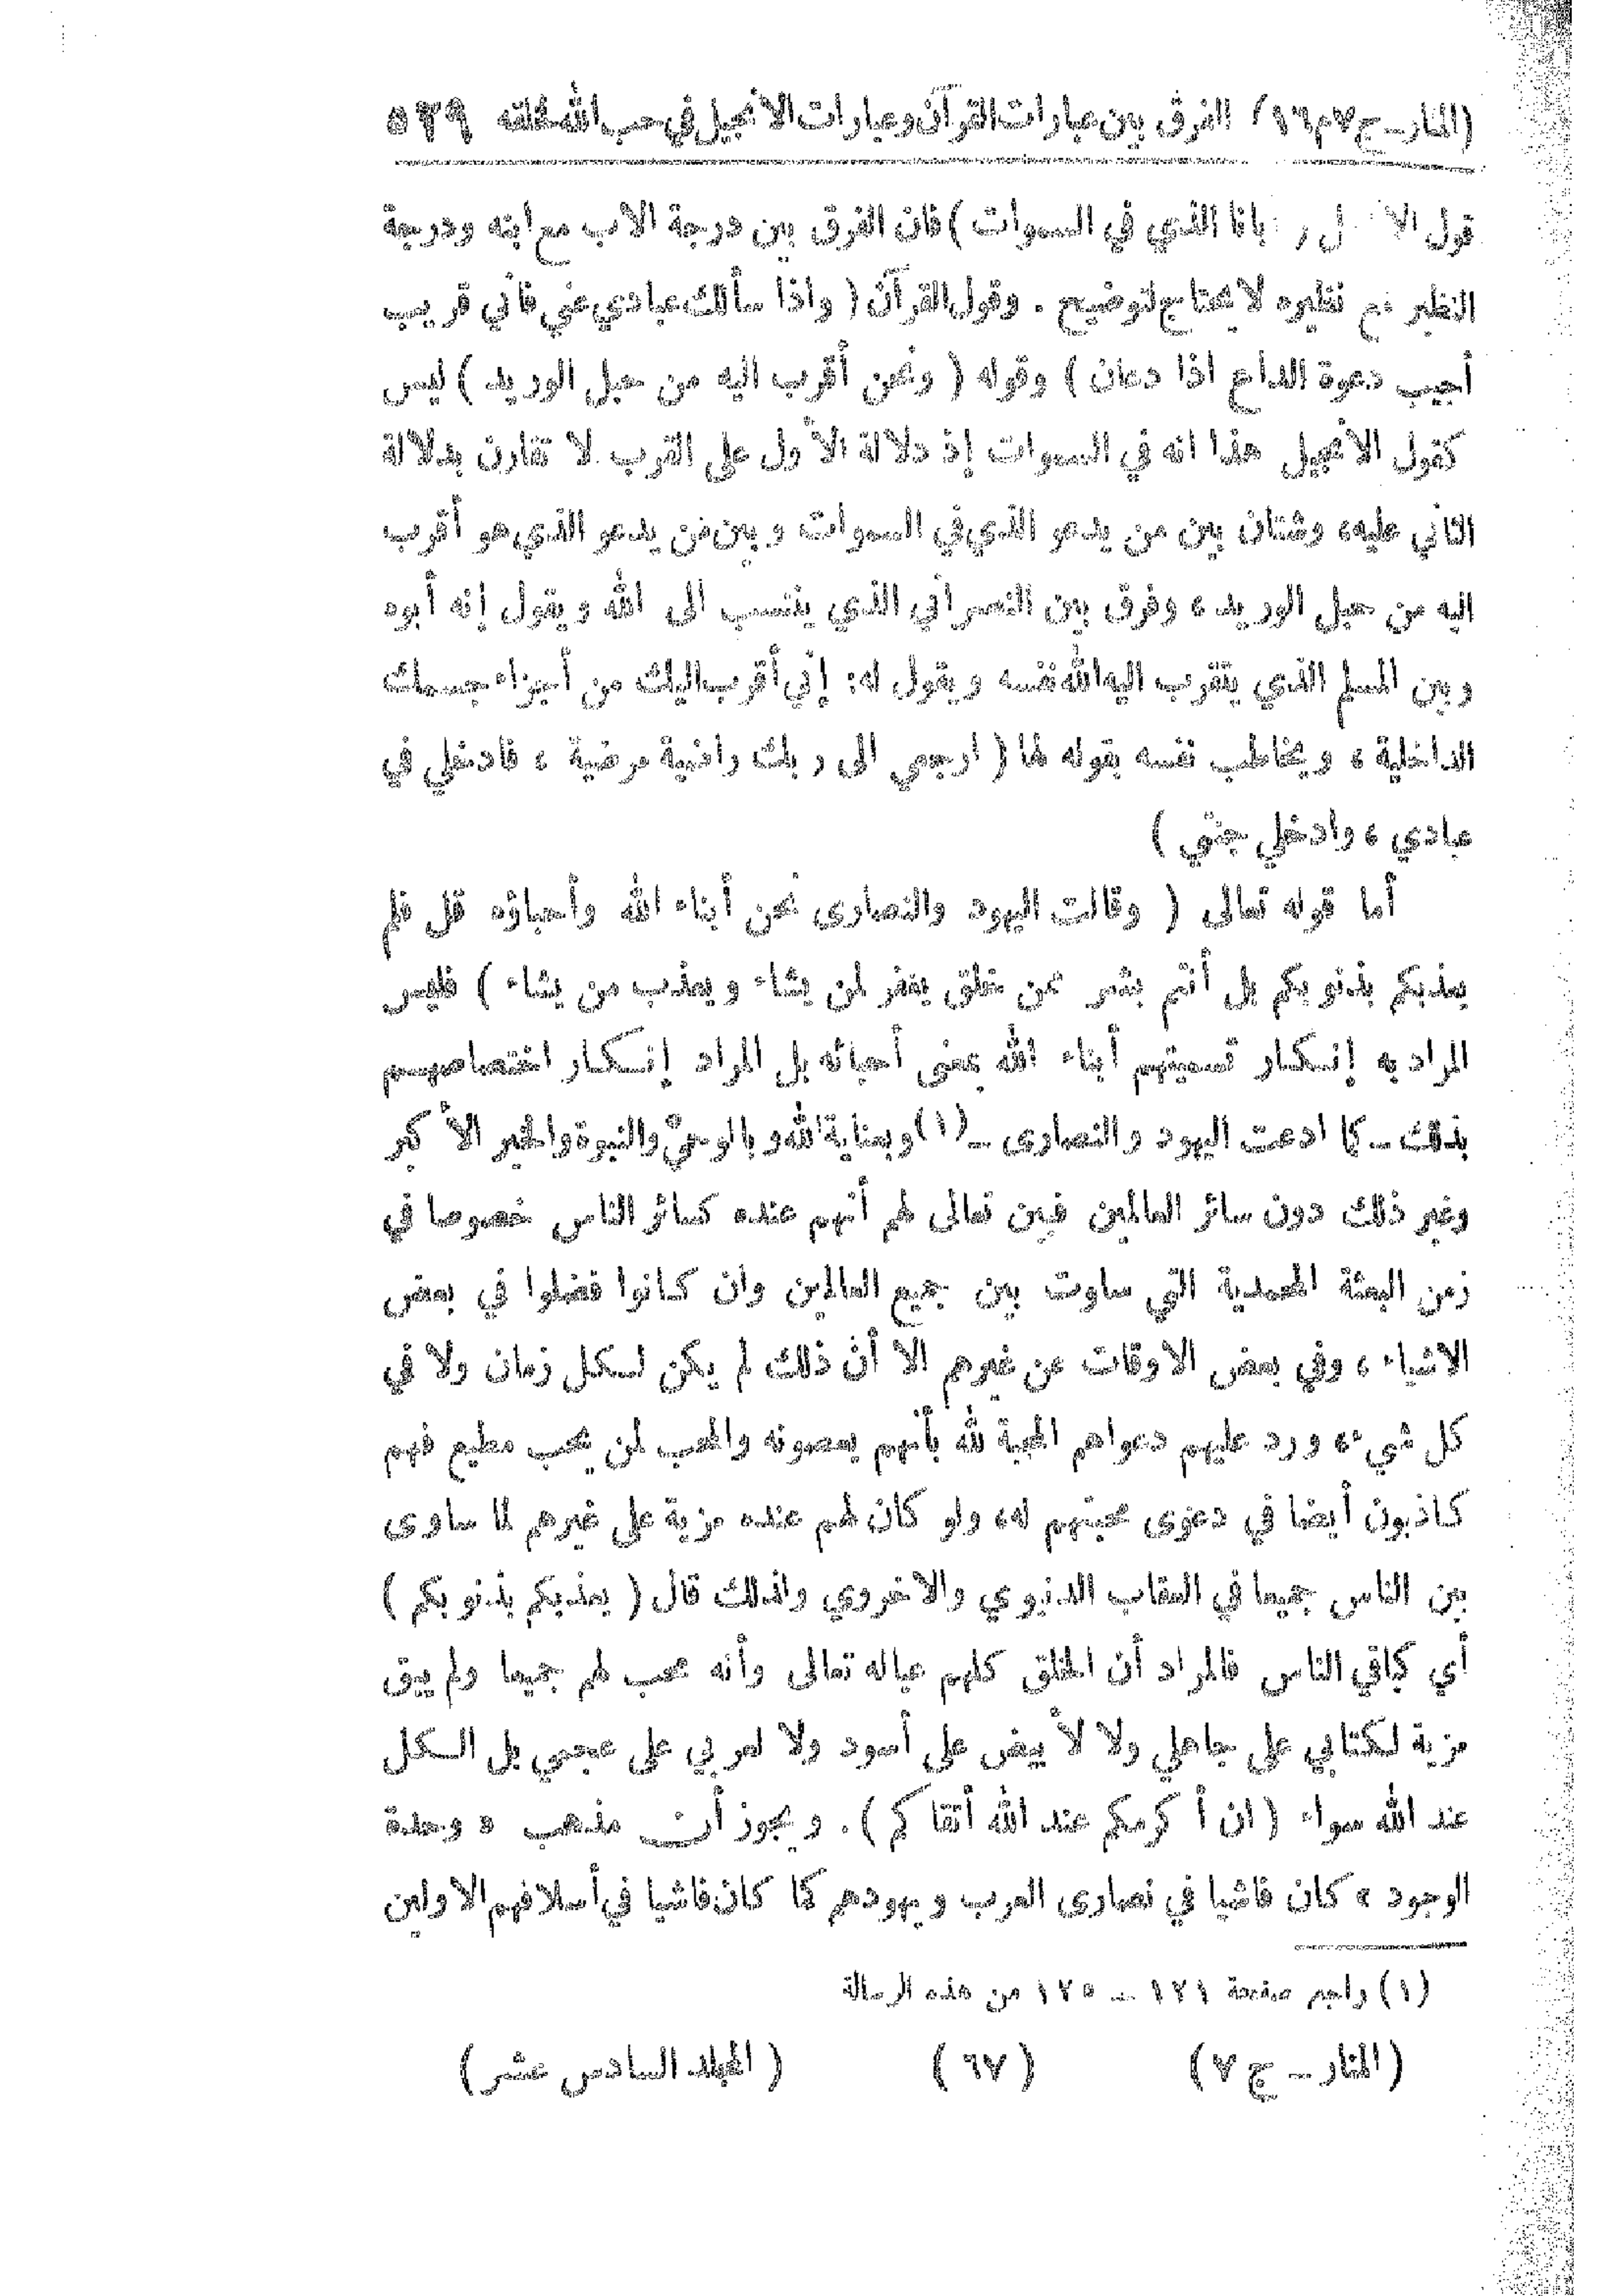 (المنار ـ ج٧م١٦) الفرق بين عبارات القرآن وعبارات الانجيل في حب الله لخلقه ٥٢٩
قول الا ل بانا الذي في السموات ) فان الفرق بين درجة الاب مع ابنه ودرجة
النظير مع نظيره لا يحتاج لتوضيح . وقول القرآن ( واذا سألك عبادي عني فأني قريب
أجيب دعوة الداع اذا دعان ) وقوله ( ونحن أقرب اليه من حبل الوريد ) ليس
كقول الانجيل هذا انه في السموات إذ دلالة الأول على القرب لا تقارن بدلالة
الثاني عليه، وشتان بين من يدعو الذي في السموات وبين من يدعو الذي هو أقرب
اليه من حبل الوريد، وفرق بين النصراني الذي ينتسب الى الله ويقول إنه أبوه
وبين المسلم الذي يتقرب اليه الله نفسه ويقول له: إني أقرب اليك من أجزاء جسمك
الداخلية ، ويخاطب نفسه بقوله لها ( ارجعي الى ربك راضية مرضية ، فادخلي في
عبادي ، وادخلي جنتي )
أما قوله تعالى ( وقالت اليهود والنصارى نحن أبناء الله وأحباؤه قل فلم
يعذبكم بذنوبكم بل أنتم بشر ممن خلق يغفر لمن يشاء ويعذب من يشاء ) فليس
المراد به إنكار تسميتهم أبناء الله بمعنى أحبائه بل المراد إنكار اختصاصهم
بذلك ـ كما ادعت اليهود والنصارى ـ (١) وبعناية الله وبالوحي والنبوة والخير الأكبر
وغير ذلك دون سائر العالمين فبين تعالى لهم أنهم عنده كسائر الناس خصوصا في
زمن البعثة المحمدية التي ساوت بين جميع العالمين وان كانوا فضلوا في بعض
الاشياء ، وفي بعض الاوقات عن غيرهم الا أن ذلك لم يكن لكل زمان ولا في
كل شيء، ورد عليهم دعواهم المحبة لله بأنهم يعصونه والمحب لمن يحب مطيع فهم
كاذبون أيضا في دعوى محبتهم له، ولو كان لهم عنده مزية على غيرهم لما ساوى
بين الناس جميعا في العقاب الدنيوي والاخروي ولذلك قال ( يعذبكم بذنوبكم )
أي كباقي الناس فالمراد أن الخلق كلهم عياله تعالى وأنه محب لهم جميعا ولم يبق
مزية لكتابي على جاهلي ولا لأبيض على أسود ولا لعربي على عجمي بل الكل
عند الله سواء ( ان أكرمكم عند الله أتقاكم ) . ويجوز أن مذهب « وحدة
الوجود » كان فاشيا في نصارى العرب ويهودهم كما كان فاشيا في أسلافهم الاولين
(١) راجع صفحة ١٧١ ـ ١٧٥ من هذه الرسالة
(المنار ـ ج ٧) (٦٧) (المجلد السادس عشر)